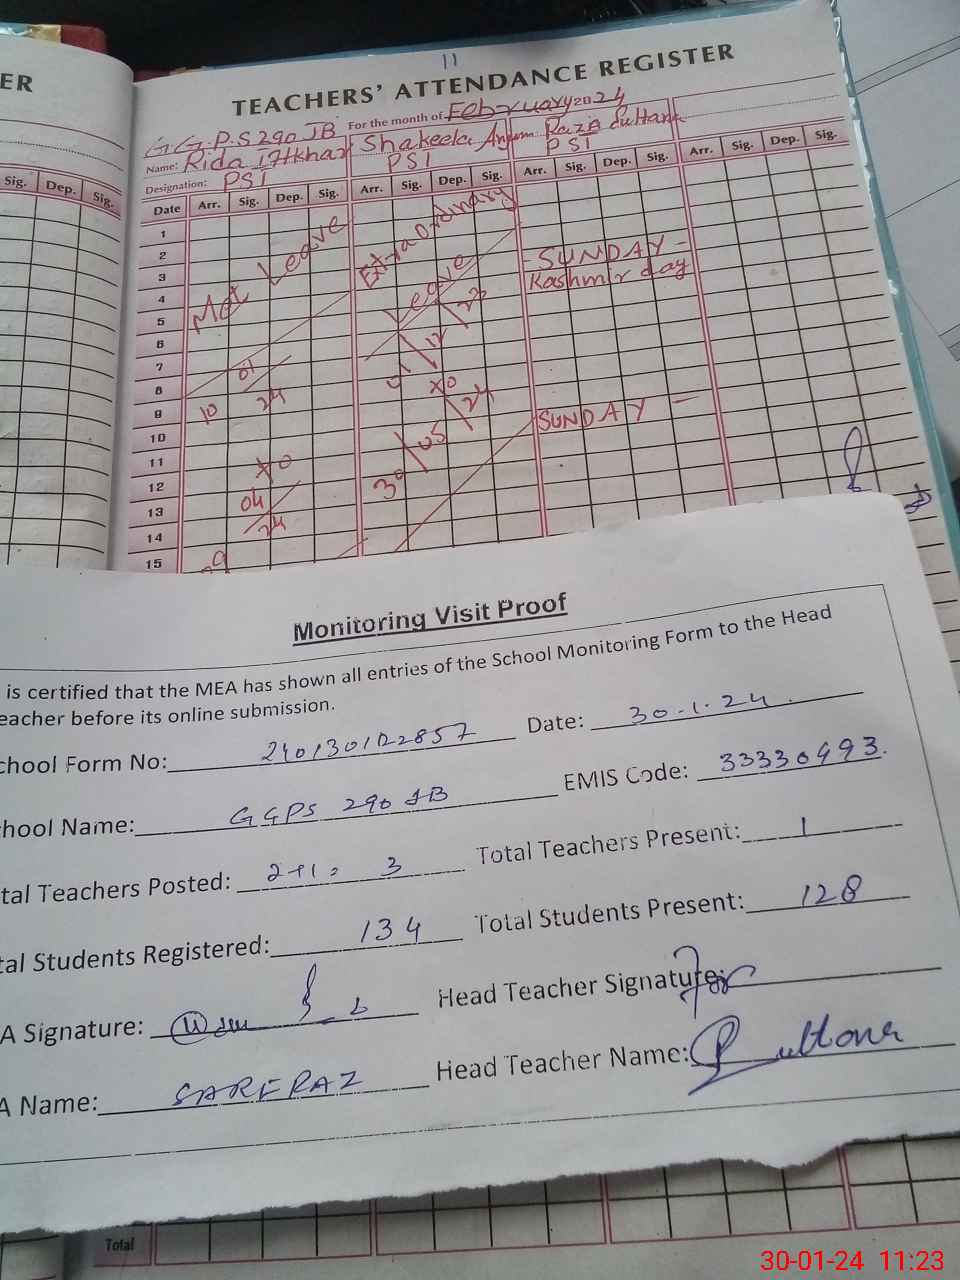 11
ER
TEACHERS' ATTENDANCE REGISTER
For the month of February 2024
G.G.P.S 290 JB
Name: Rida Iftkhar Shakeela Anjum Raza Sultana
Designation: PSI PSI PSI
Sig. Dep. Sig.
Date Arr. Sig. Dep. Sig. Arr. Sig. Dep. Sig. Arr. Sig. Dep. Sig. Arr. Sig. Dep. Sig.
1
2
3
4
5
6
7
8
9
10
11
12
13
14
15
Mat Leave
10 01 24
to
04
24
09
Extraordinary
Leave
12 23
to
30 05 24
- SUNDAY -
Kashmir day
SUNDAY -
Monitoring Visit Proof
is certified that the MEA has shown all entries of the School Monitoring Form to the Head
eacher before its online submission.
chool Form No: 240130122857 Date: 30.1.24.
hool Name: GGPS 290 JB EMIS Code: 33330493.
tal Teachers Posted: 2+1= 3 Total Teachers Present: 1
tal Students Registered: 134 Total Students Present: 128
A Signature: Head Teacher Signature:
A Name: SARFRAZ Head Teacher Name: R Sultana
Total
30-01-24 11:23